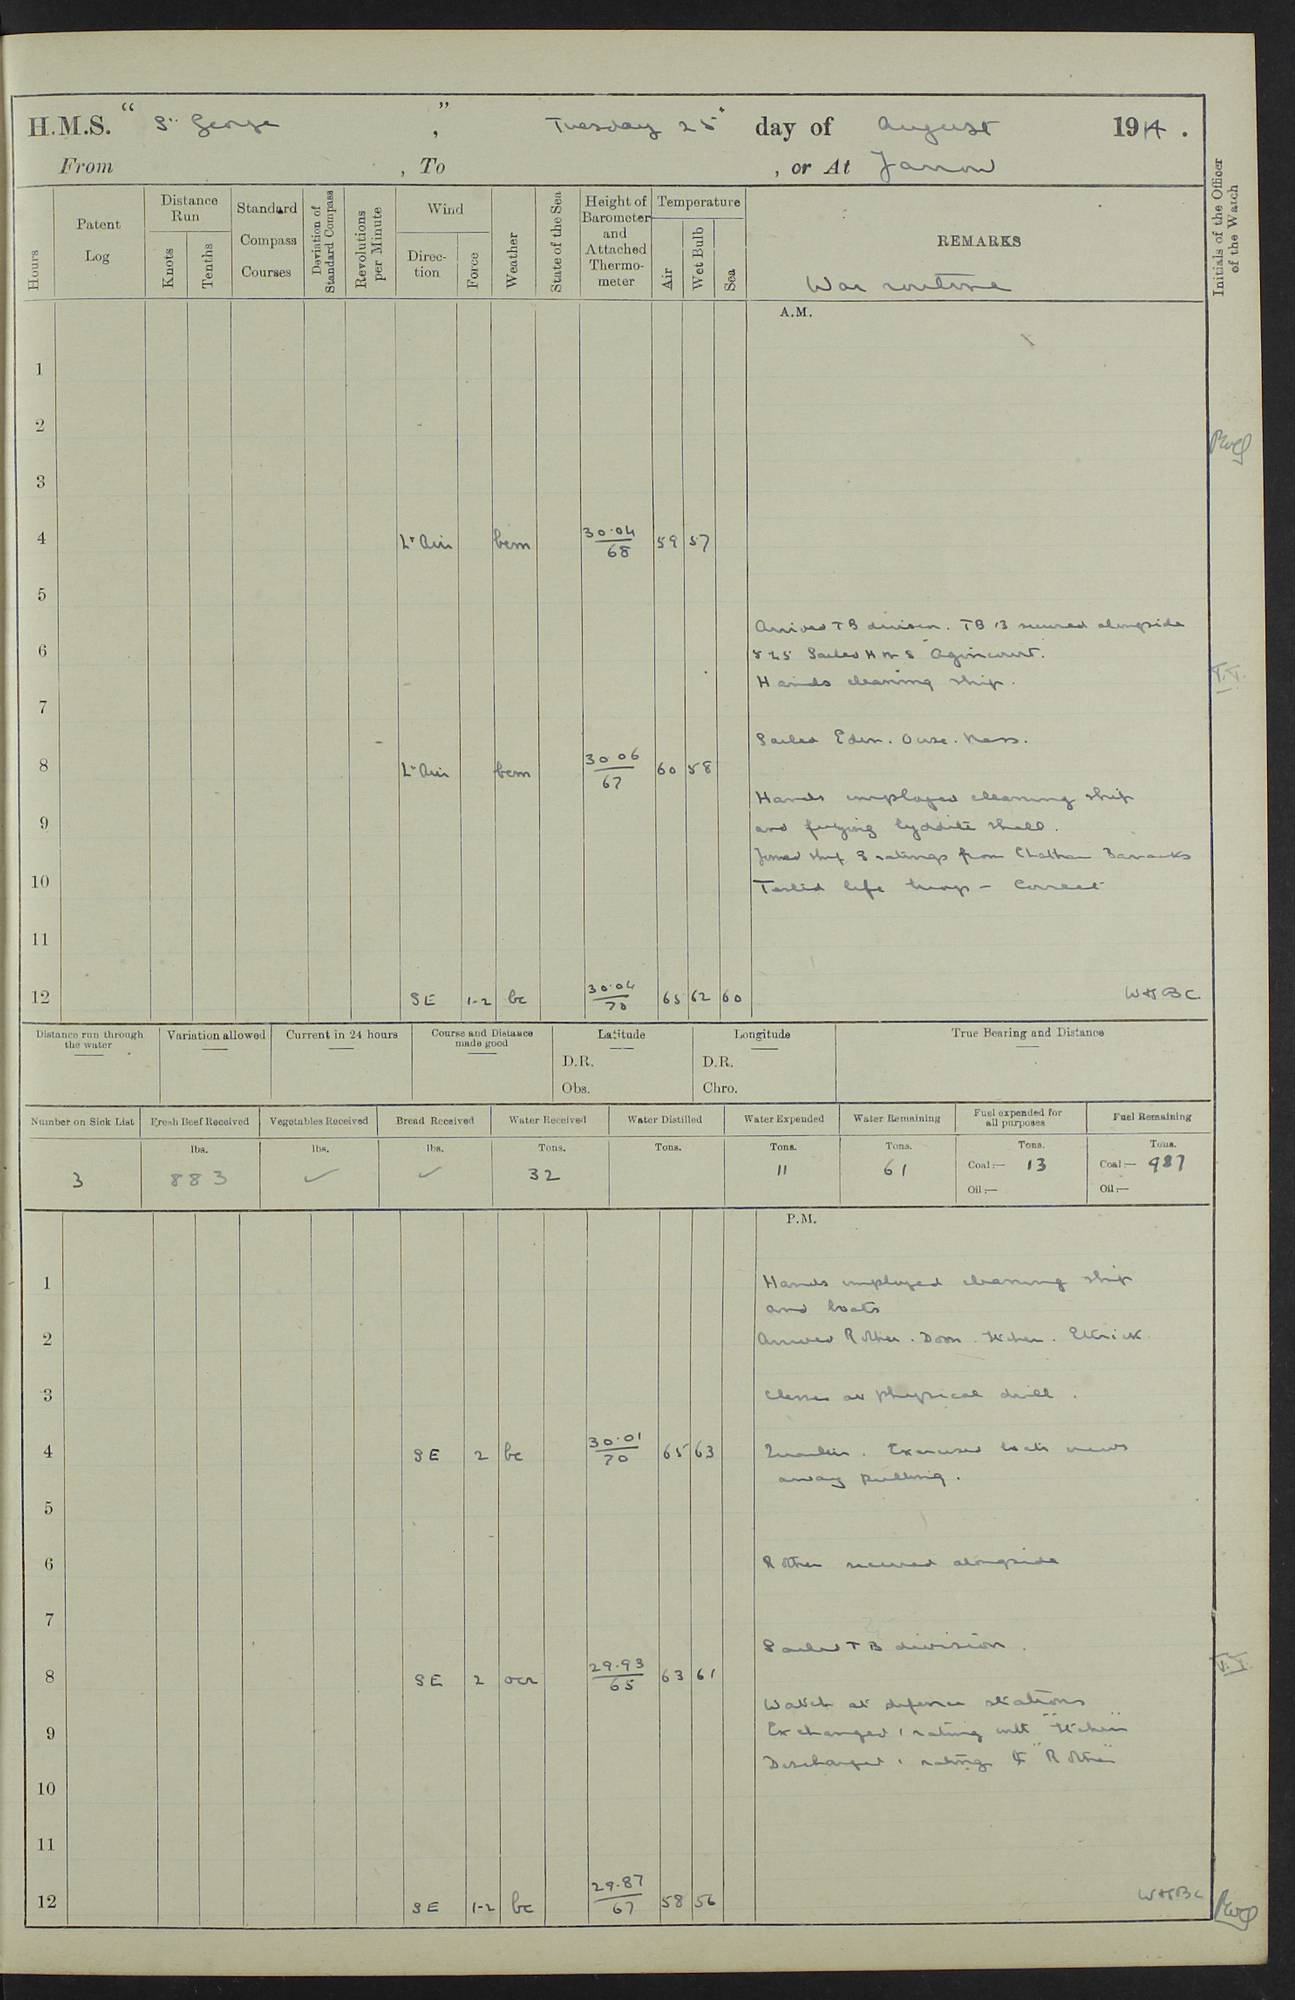 H.M.S. “ St George ”, Tuesday 25th day of August 1914.
From , To , or At Jarrow
Hours
Patent Log
Distance Run
Knots
Tenths
Standard Compass Courses
Deviation of Standard Compass
Revolutions per Minute
Wind
Direction
Force
Weather
State of the Sea
Height of Barometer and Attached Thermometer
Temperature
Air
Wet Bulb
Sea
REMARKS
War routine
Initials of the Officer of the Watch
A.M.
1
2
3
4 Lt Air bcm 30.04 68 59 57
5
Arrived TB division. TB 13 secured alongside
6 Sailed HMS "Agincourt".
Hands cleaning ship.
7
Sailed Eden. Ouse. Ness.
8 Lt Air bcm 30 06 67 60 58
Hands employed cleaning ship
9 and fuzing lyddite shell.
Joined ship 8 ratings from Chatham Barracks
10 Tested life buoys - Correct
11
12 SE 1-2 bc 30.04 70 65 62 60 WHBC
Distance run through the water
Variation allowed
Current in 24 hours
Course and Distance made good
Latitude
Longitude
True Bearing and Distance
D.R. D.R.
Obs. Chro.
Number on Sick List
Fresh Beef Received
Vegetables Received
Bread Received
Water Received
Water Distilled
Water Expended
Water Remaining
Fuel expended for all purposes
Fuel Remaining
lbs. lbs. lbs. Tons. Tons. Tons. Tons. Tons. Tons.
3 883 ✓ ✓ 32 11 61 Coal:— 13 Coal:— 987
Oil:— Oil:—
P.M.
1 Hands employed cleaning ship
and boats
2 Arrived Rother. Doon. Itchen. Ettrick.
3 Classes at physical drill.
4 SE 2 bc 30.01 70 65 63 Quarters. Exercised boats crews
away pulling.
5
6 Rother secured alongside
7
Sailed TB division.
8 SE 2 ocr 29.93 65 63 61
Watch at defence stations
9 Exchanged 1 rating with "Itchen"
Discharged 1 rating to "Rother"
10
11
12 SE 1-2 bc 29.87 67 58 56 WHBC